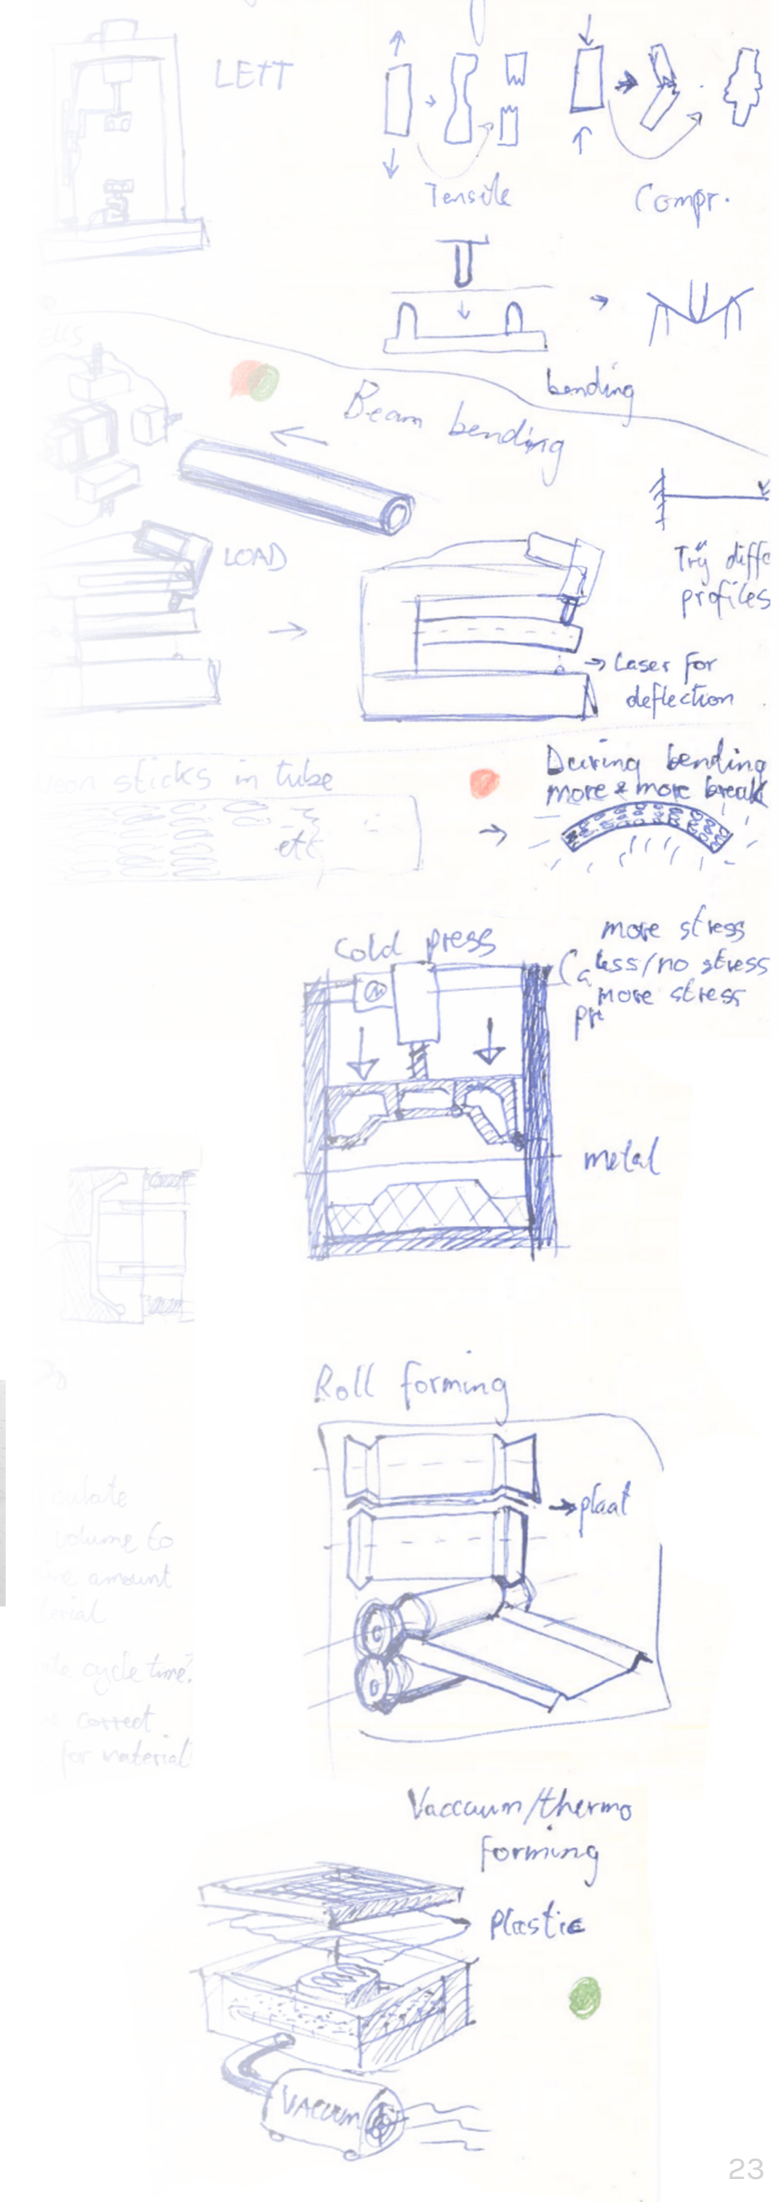 LETT
Tensile
Compr.
bending
Beam bending
LOAD
Try diffe
profiles
Laser for
deflection
sticks in tube
etc
During bending
more & more break
Cold press
more stress
less/no stress
more stress
metal
Roll forming
plaat
culate
volume to
amount
erial
cycle time?
correct
for material
Vaccuum/thermo
forming
plastic
VACUUM
23